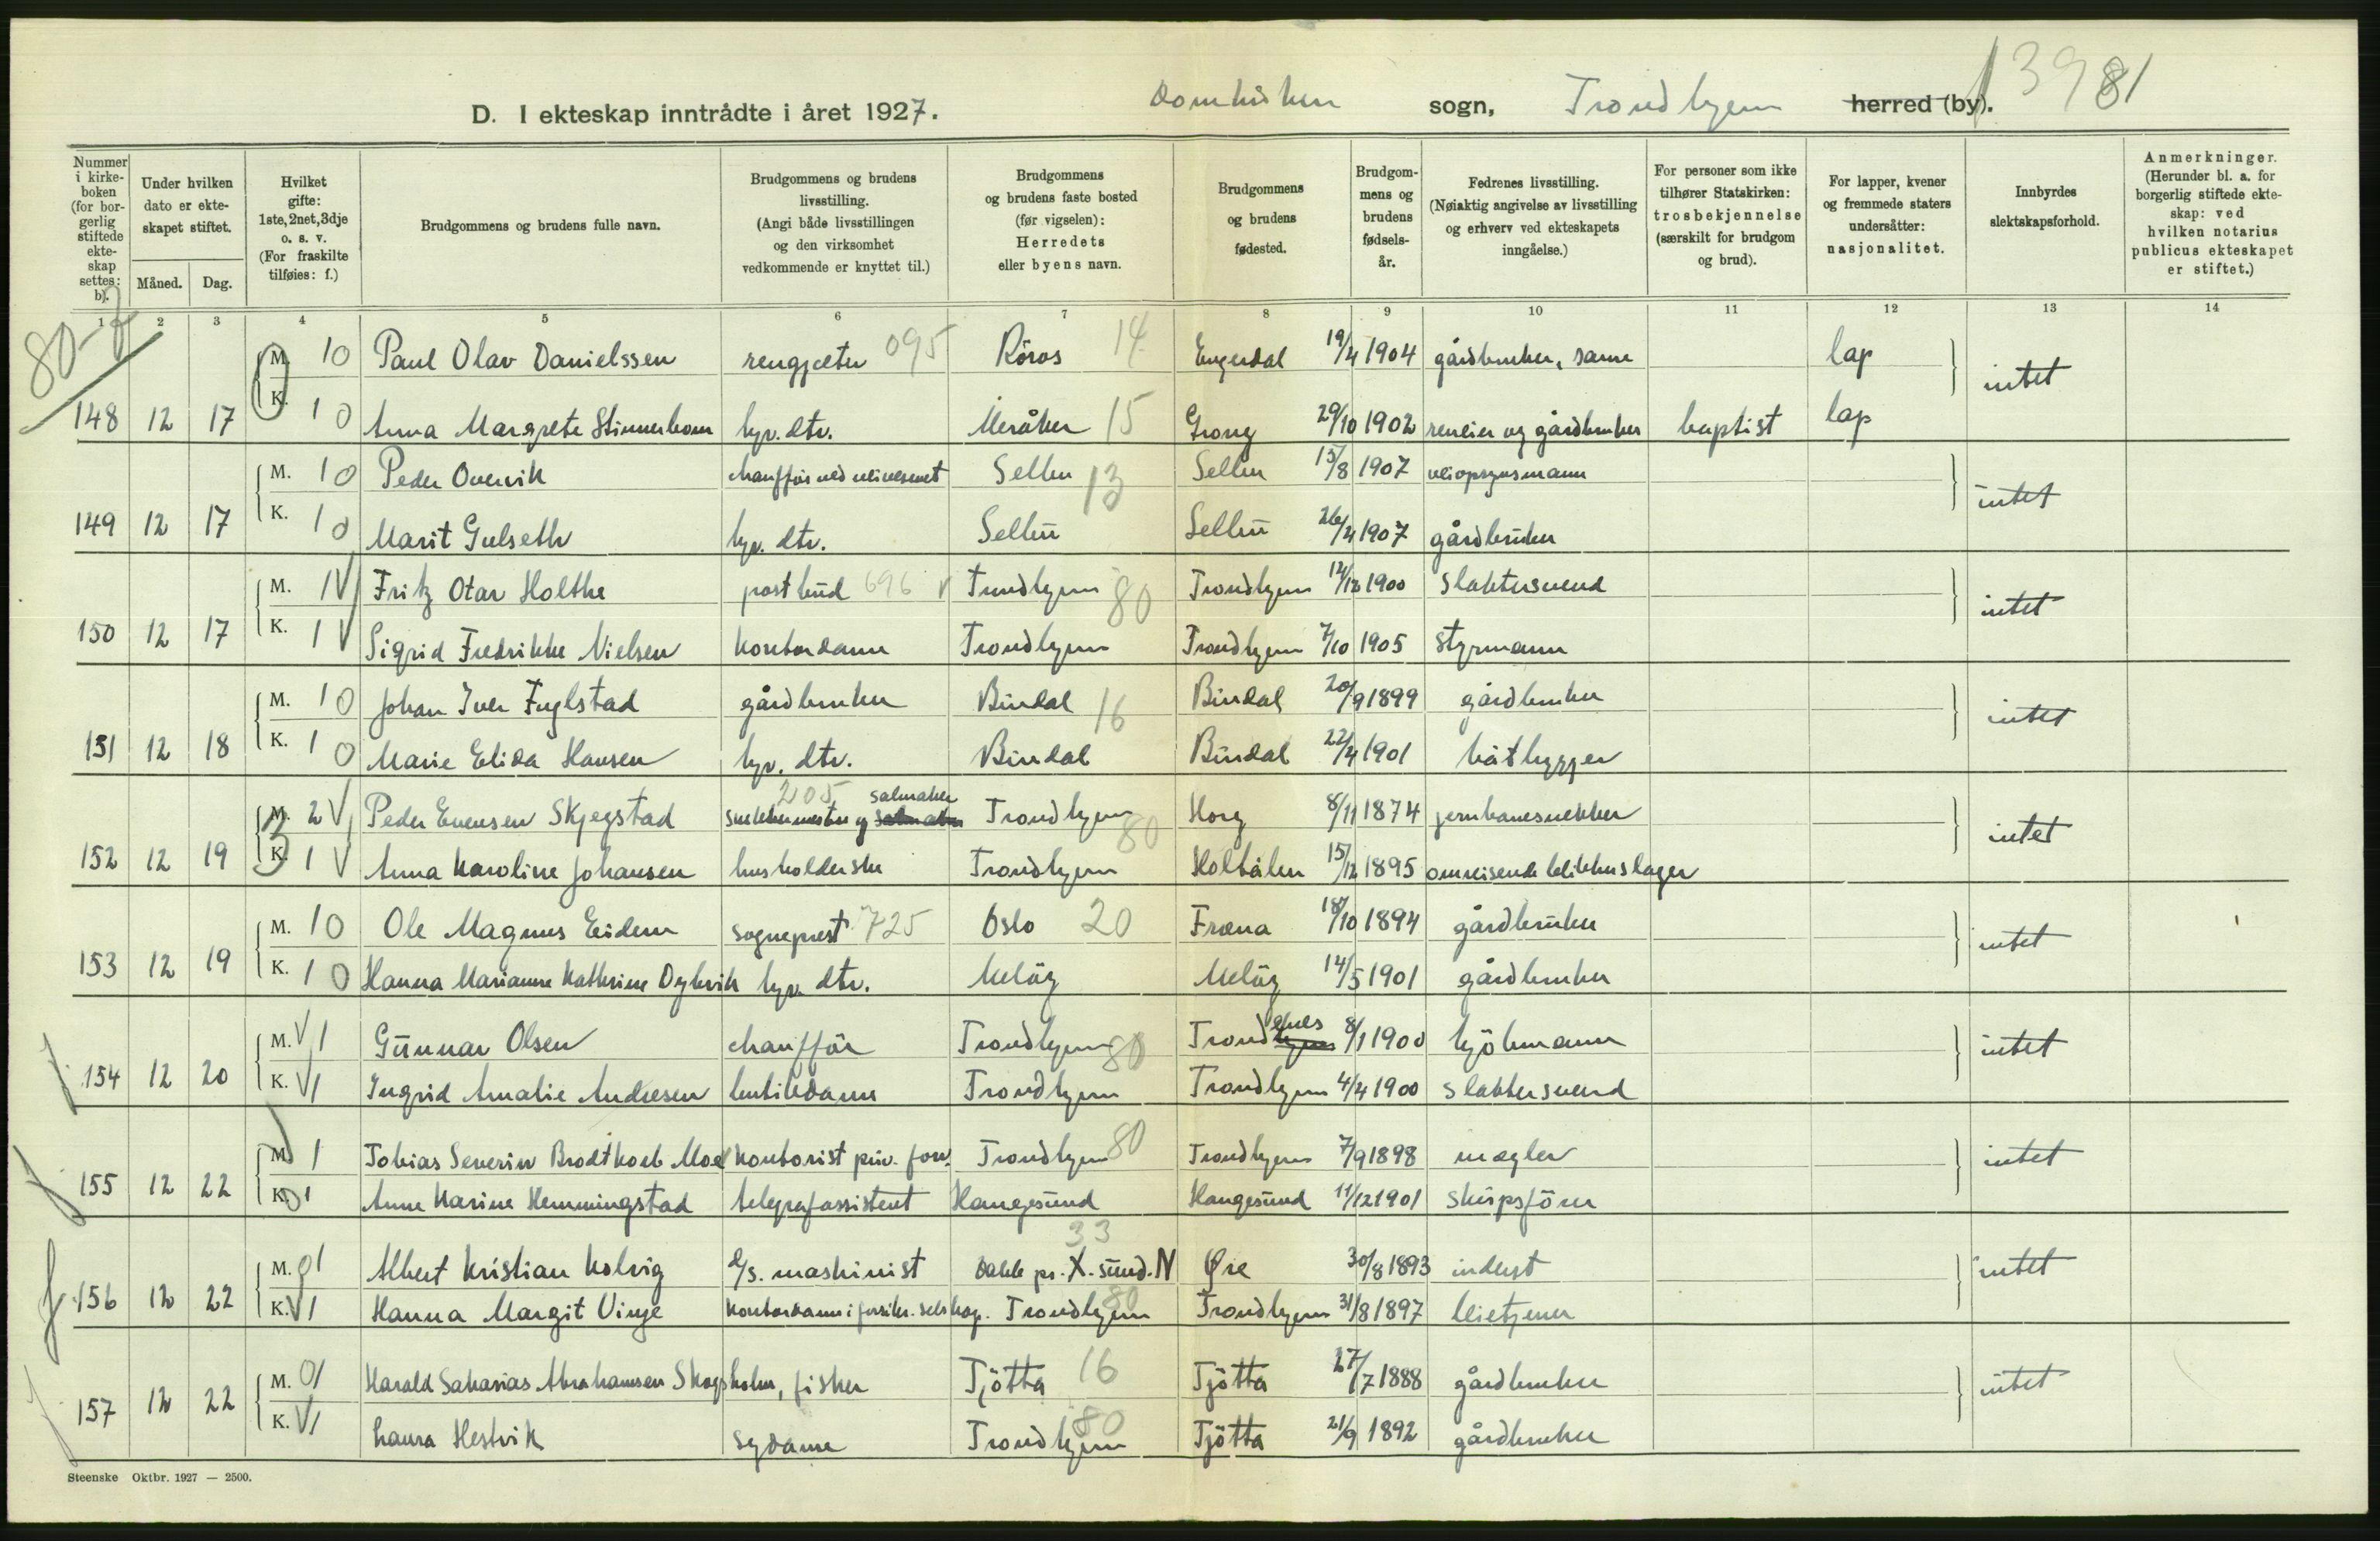 D. I ekteskap inntrådte i året 1927. Domkirken sogn, Trondhjem herred (by). 1398 81
Nummer i kirkeboken (for borgerlig stiftede ekteskap settes: b).
Under hvilken dato er ekteskapet stiftet.
Måned. Dag.
Hvilket gifte: 1ste, 2net, 3dje o. s. v. (For fraskilte tilføies: f.)
Brudgommens og brudens fulle navn.
Brudgommens og brudens livsstilling. (Angi både livsstillingen og den virksomhet vedkommende er knyttet til.)
Brudgommens og brudens faste bosted (før vigselen): Herredets eller byens navn.
Brudgommens og brudens fødested.
Brudgommens og brudens fødselsår.
Fedrenes livsstilling. (Nøiaktig angivelse av livsstilling og erhverv ved ekteskapets inngåelse.)
For personer som ikke tilhører Statskirken: trosbekjennelse (særskilt for brudgom og brud).
For lapper, kvener og fremmede staters undersåtter: nasjonalitet.
Innbyrdes slektskapsforhold.
Anmerkninger. (Herunder bl. a. for borgerlig stiftede ekteskap: ved hvilken notarius publicus ekteskapet er stiftet.)
1 2 3 4 5 6 7 8 9 10 11 12 13 14
80-2
M. 1 0 Paul Olav Danielssen rengjæter 095 Röros 14 Engerdal 19/4 1904 gårdbruker, same lap intet
148 12 17 K. 1 0 Anna Margrete Stinnerbom hjv. dtr. Meråker 15 Grong 29/10 1902 reneier og gårdbruker baptist lap
M. 1 0 Peder Overvik chauffør ved veivesenet Selbu 13 Selbu 15/8 1907 veiopsynsmann intet
149 12 17 K. 1 0 Marit Gulseth hjv. dtr. Selbu Selbu 26/4 1907 gårdbruker
M. 1 V Fritz Otar Holthe postbud 696 V Trondhjem 80 Trondhjem 12/12 1900 slaktersvend intet
150 12 17 K. 1 V Sigrid Fredrikke Nielsen kontordame Trondhjem Trondhjem 7/10 1905 styrmann
M. 1 0 Johan Iver Fuglstad gårdbruker Bindal 16 Bindal 20/9 1899 gårdbruker intet
151 12 18 K. 1 0 Marie Elida Hansen hjv. dtr. Bindal Bindal 22/4 1901 båtbygger
205 salmaker
M. 2 V Peder Evensen Skjegstad snekkermester og salmaker Trondhjem 80 Horg 8/11 1874 jernbanesnekker intet
152 12 19 K. 1 V Anna Karoline Johansen husholderske Trondhjem Holtålen 15/12 1895 omreisende blikkenslager
M. 1 0 Ole Magnus Eidem sogneprest 725 Oslo 20 Fræna 18/10 1894 gårdbruker intet
153 12 19 K. 1 0 Hanna Marianne Kathrine Dyhrvik hjv. dtr. Melöy Melöy 14/5 1901 gårdbruker
M. V 1 Gunnar Olsen chauffør Trondhjem 80 Trondenes 8/1 1900 kjöbmann intet
154 12 20 K. V 1 Ingrid Amalie Andresen butikdame Trondhjem Trondhjem 4/4 1900 slaktersvend
M. V 1 Tobias Severin Brodtkorb Moe kontorist priv. forr. Trondhjem 80 Trondhjem 7/9 1898 mægler intet
155 12 22 K. 0 1 Anne Marine Hemmingstad telegrafassistent Haugesund Haugesund 11/12 1901 skipsförer
33
M. 0 1 Albert Kristian Kolvig d/s. maskinist Dahle pr. X.sund. N Øre 30/8 1893 inderst intet
156 12 22 K. V 1 Hanna Margit Vinje kontordame i forsikr. selskap. Trondhjem 80 Trondhjem 31/8 1897 bietjener
M. 0 1 Harald Sakarias Abrahamsen Skogsholm, fisker Tjötta 16 Tjötta 27/7 1888 gårdbruker intet
157 12 22 K. V 1 Laura Hestvik sydame Trondhjem 80 Tjötta 21/9 1892 gårdbruker
Steenske Oktbr. 1927 — 2500.